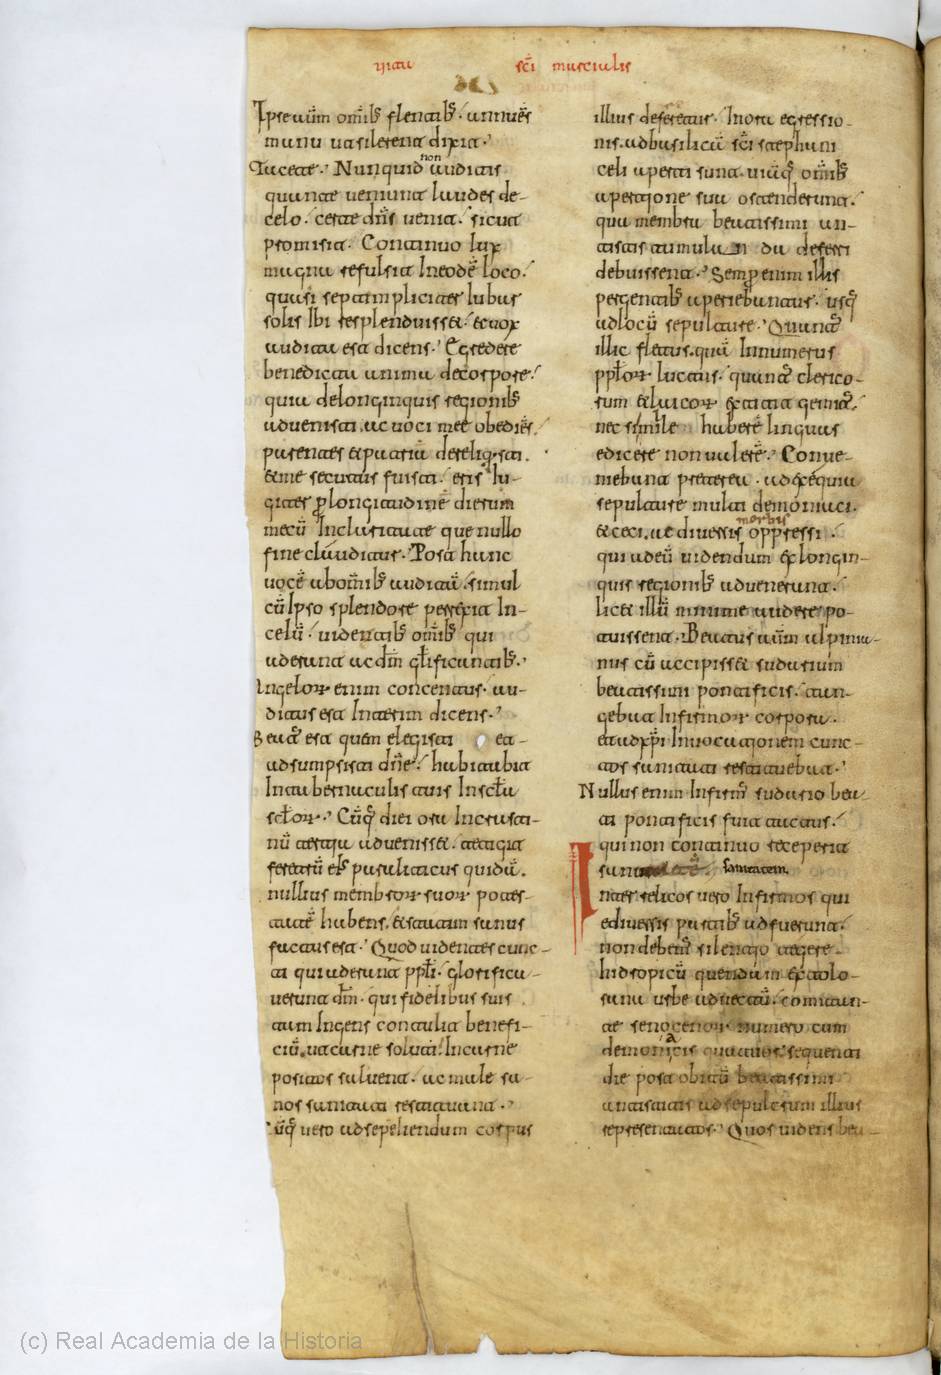 vita sc̄i marcialis
Ipse vērm om̄ib; flentib;. annues
manu ut silerent dixit.
Tacete. Nunquid non auditis
quante veniunt laudes de-
celo. certe dn̄s venit. sicut
promisit. Continuo lux
magna refulsit In eodē loco.
quasi septimpliciter Iubar
solis Ibi resplenduisset. et vox
audita est dicens. Egredere
benedicta anima de corpore.
quia de longinquis regionib;
advenisti. ac voci mee obediēs.
parentes et patriā dereliq;sti.
et me secutus fuisti. eris Iu-
giter ꝑ longitudinē dierum
mecū In claritate que nullo
fine clauditur. Post hanc
vocē ab om̄ib; auditā. simul
cū Ipso splendore perrexit In-
celū. videntib; om̄ib; qui
aderant ac dm̄ gl̄ificantib;.
Angeloꝝ enim concentus. au-
ditus est Interim dicens.
Beat; est quem elegisti et-
adsumpsisti dn̄e. habitabit
In tabernaculis tuis In sc̄la
sc̄loꝝ. Cūq; diei ora Incrasti-
nū tertia advenisset. tetigit
feretrū ei; paraliticus quidā.
nullius membroꝝ suoꝝ potes-
tatē habens. et statim sanus
factus est. Quod videntes cunc-
ti qui aderant pp̄li. glorifica-
verunt dm̄. qui fidelibus suis
tum Ingens contulit benefi-
ciū. ut carne soluti. In carne
positos salvent. ac male sa-
nos sanitati restituant.
Cūq; vero ad sepeliendum corpus
illius deferetur. In ora egressio-
nis. ad basilicā sc̄i stephani
celi aperti sunt. viāq; om̄ib;
apertione sua ostenderunt.
qua membra beatissimi an-
tistitis tumulanda deferri
debuissent. Semꝑ enim illis
pergentib; aperiebantur. usq;
ad locū sepulture. Quant;
illic fletus. quā Innumerus
pp̄loꝝ luctus. quant; clerico-
rum et laicoꝝ extitit gemit;.
nec simile habere linguas
edicere non valere. Conve-
niebant preterea. ad exequia
sepulture multi demoniaci.
et ceci. ac diversis morbis oppressi.
qui ad eū videndum ex longin-
quis regionib; advenerunt.
licet illū minime videre po-
tuissent. Beatus vērm alpinia-
nus cū accipisset sudarium
beatissimi pontificis. tan-
gebat Infirmoꝝ corpora.
et ad xp̄i Invocationem cunc-
tos sanitati restituebat.
Nullus enim Infirm; sudario bea-
ti pontificis fuit tactus.
qui non continuo receperit
sanitatem.
Inter relicos vero Infirmos qui
e diversis partib; adfuerunt.
non debem; silentio tegere.
hidropicū quendam ex tolo-
sana urbe advectū. comitan-
te senoꝝ numero cum
demoniacis quatuor. sequenti
die post obitū beatissimi
antistitis ad sepulcrum illius
representatos. Quos videns bea-
(c) Real Academia de la Historia